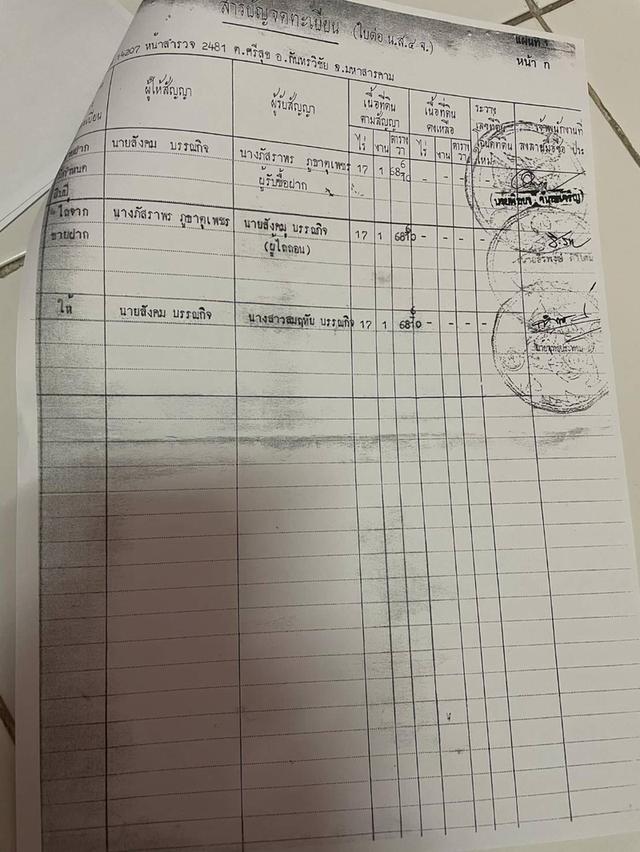 สารบัญจดทะเบียน (ใบต่อ น.ส.๔ จ.)
แผ่นที่ 1
หน้า ก
14207 หน้าสำรวจ 2481 ต.ศรีสุข อ.กันทรวิชัย จ.มหาสารคาม
ผู้ให้สัญญา ผู้รับสัญญา เนื้อที่ดิน ตามสัญญา เนื้อที่ดิน คงเหลือ ระวาง เลขที่ดิน
ไร่ งาน ตารางวา ไร่ งาน ตารางวา ใหม่
นายสังคม บรรณกิจ นางภัสราพร ภูขาตุเพชร 17 1 68 6/10 - - - -
กำหนด ผู้รับซื้อฝาก
ไถ่จาก นางภัสราพร ภูขาตุเพชร นายสังคม บรรณกิจ 17 1 68 6/10 - - - -
ขายฝาก (ผู้ไถ่ถอน)
ให้ นายสังคม บรรณกิจ นางสาวสมฤทัย บรรณกิจ 17 1 68 6/10 - - - -